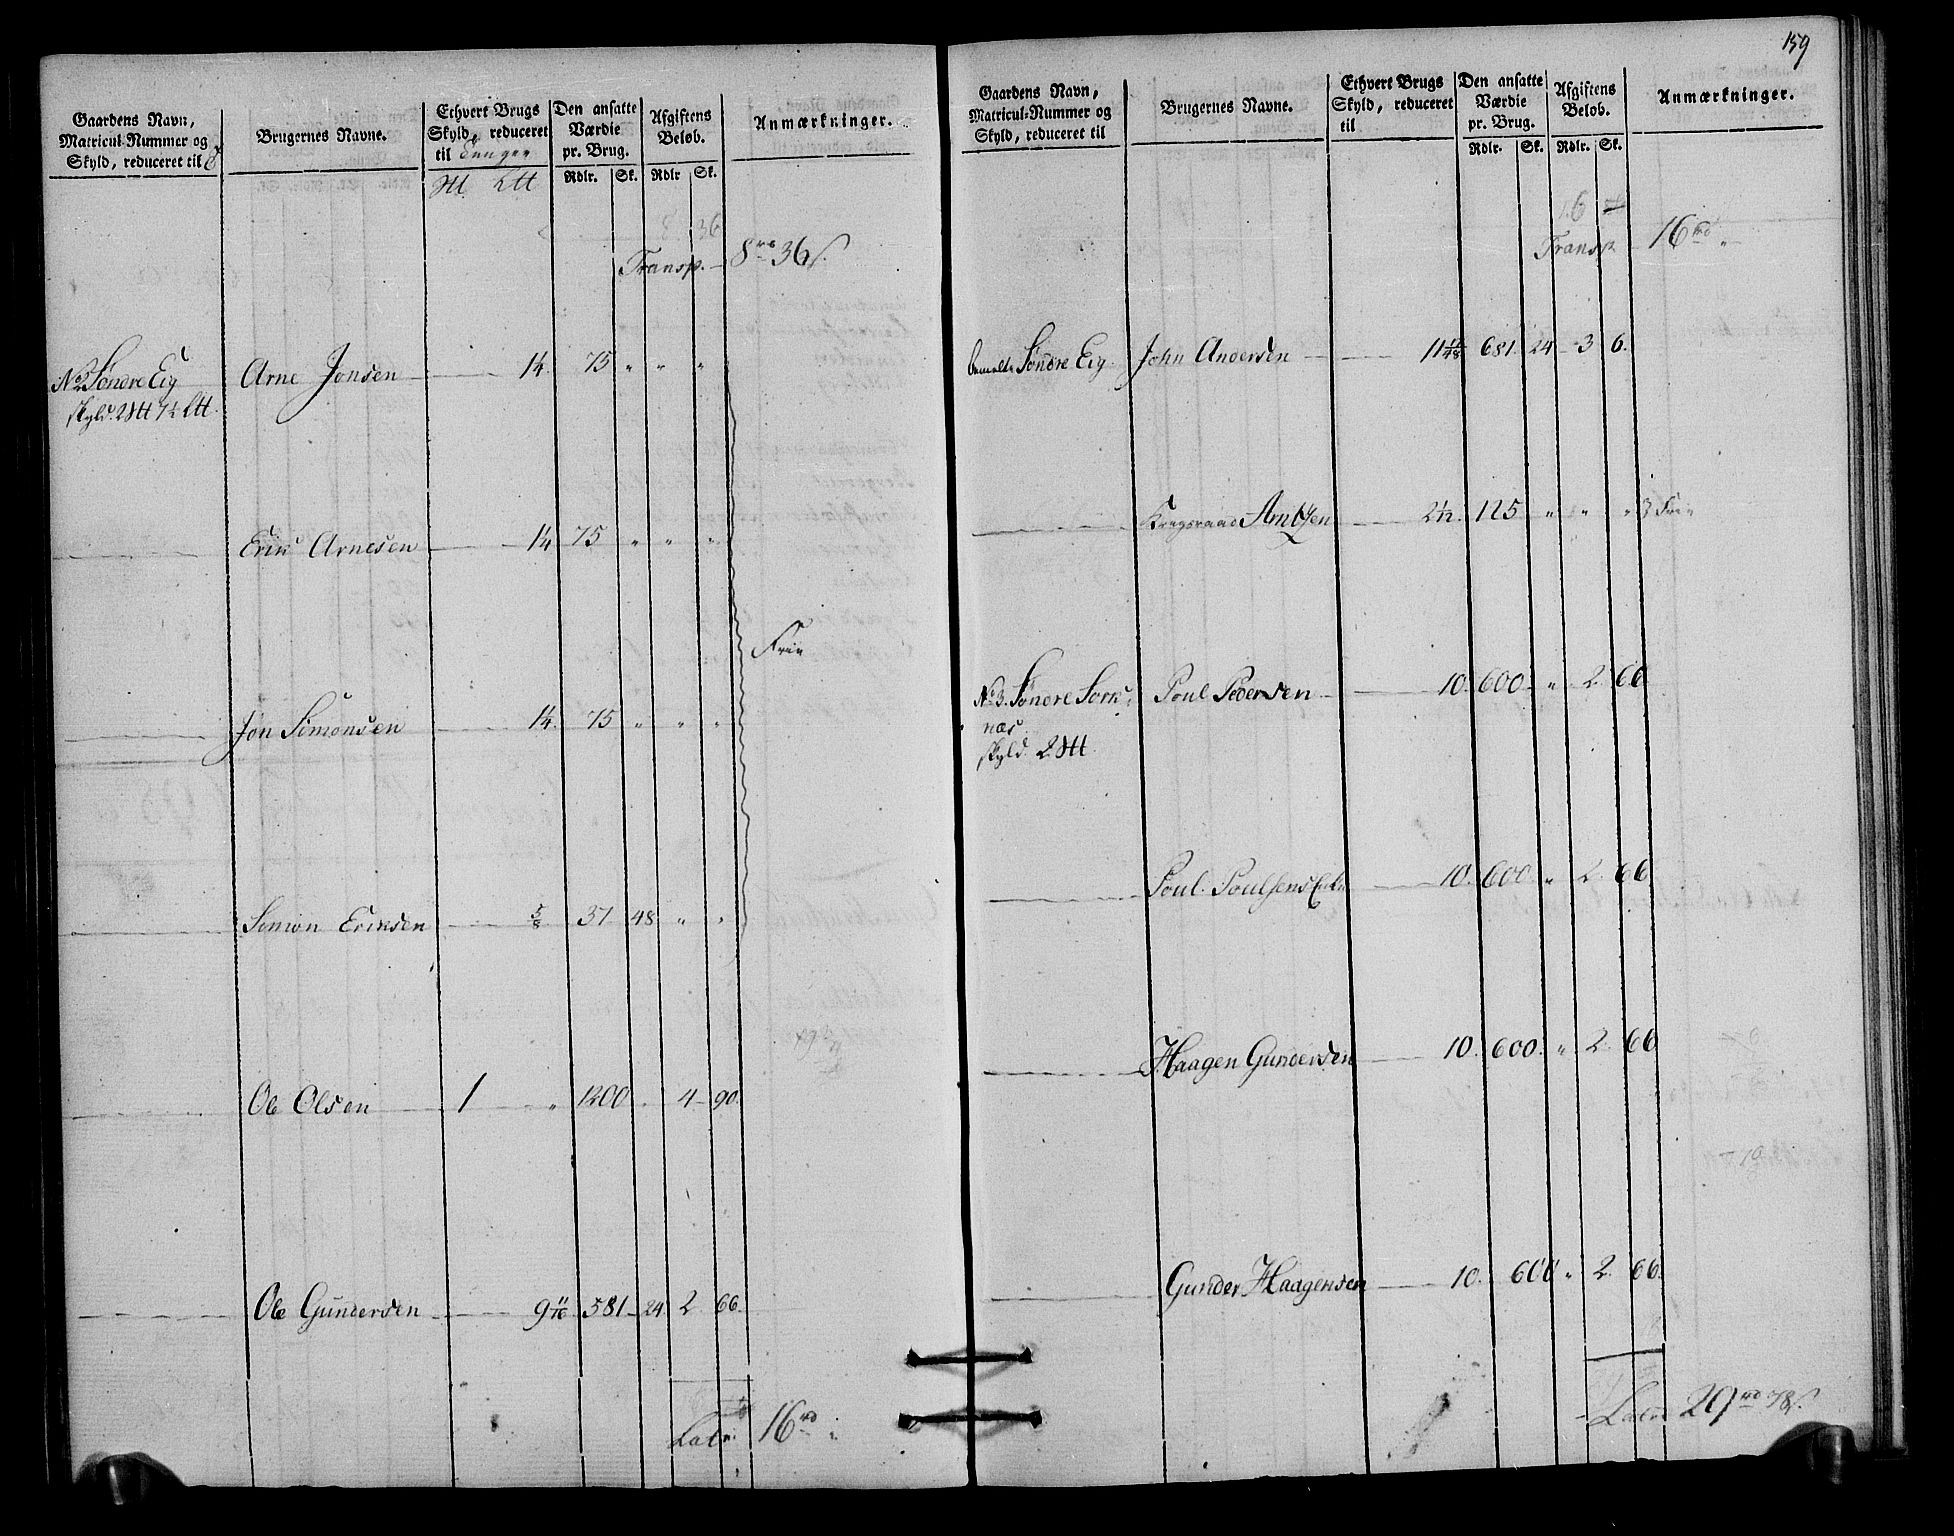 Gaardens Navn,
Matricul-Nummer og
Skyld, reduceret til
Brugernes Navne.
Ethvert Brugs
Skyld, reduceret
til Tunger
Den ansatte
Værdie
pr. Brug.
Afgiftens
Beløb.
Anmærkninger.
Rdlr. Sk. Rdlr Sk.
8. 36
Transp. 8 rd 36 s.
No 2 Søndre Eig Arne Jonsen 1¼. 75 " " "
skyld. 2 7½
Erik Arnesen 1¼ 75 " " "
Frie
Jon Simonsen 1¼. 75 " " "
Simon Eriksen ⅝ 37 48 " "
Ole Olsen 1 " 1200 4 90.
Ole Gundersen 9 11/16 581 24 2 66.
Latr. 16 rd "
159
Gaardens Navn,
Matricul-Nummer og
Skyld, reduceret til
Brugernes Navne.
Ethvert Brugs
Skyld, reduceret
til
Den ansatte
Værdie
pr. Brug.
Afgiftens
Beløb.
Anmærkninger.
Rdlr. Sk. Rdlr. Sk.
16
Transp. 16 rd "
bemelte Søndre Eig John Andersen 681. 24 3 6.
Krigsraad Arntzen 2 1/12. 125 " " " Frie
No 3. Søndre Sorknæs Poul Pedersen 10. 600 " 2. 66
skyld. 2
Poul Poulsens Enke 10. 600 " 2. 66
Haagen Gundersen 10. 600. " 2. 66
Gunder Haagensen 10. 600 " 2. 66.
Latr. 29 rd 78 s.